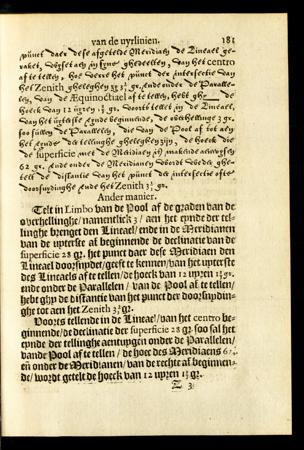 van de uyrlinien. 181
punct daer dese afgetelde Meridiaen de Lineael ge-
raket, oogset aen zijn
af te tellen, hoe verre het punct der intersectie van
het Zenith gheleghen zij 3¾ gr. Ende onder de Paralle-
len, van de Æquinoctiael af te tellen, hebt ghy de
houck van 12 uyren
van het uyterste ende beginnende, de overhellinge 3 gr.
soo sullen de Parallelen, die van de Pool af tot aen
het eynde der tellinghe gheleghen zijn, de hoeck die
de superficie met de Meridiaen
62 gr. Ende onder de Meridianen wordt
telt de distantie van het punct der intersectie ofte
doorsnydinghe ende het Zenith 3¾ gr.
Ander manier.
Telt in Limbo van de Pool af de graden van de
overhellinghe/ namentlick 3/ aen het eynde der tel-
linghe brenget den Lineael/ ende in de Meridianen
van de uyterste af beginnende de declinatie van de
superficie 28 gr. het punct daer dese Meridiaen den
Lineael doorsnydet/ geeft te kennen/ van het uyterste
des Lineaels af te tellen/ de hoeck van 12 uyren
ende onder de Parallelen/ van de Pool af te tellen/
hebt ghy de distantie van het punct der doorsnydin-
ghe tot aen het Zenith 3¾ gr.
Voorts tellende in de Lineael/ van het centro be-
ginnende/ de declinatie der superficie 28 gr. soo sal het
eynde der tellinghe aentypgen onder de Parallelen/
vande Pool af te tellen/ de hoec des Meridiaens
en onder de Meridianen/ van de rechte af beginnen-
de/ wordt getelt de hoeck van 12 uyren
Z 3